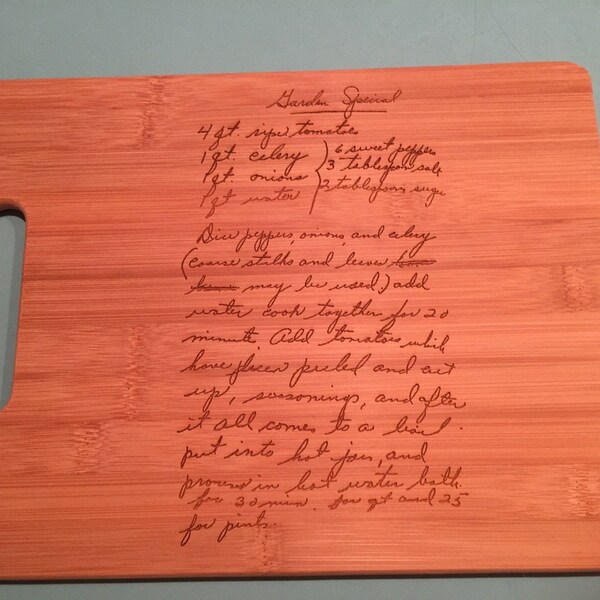 Garden Special
4 qt. ripe tomatoes
1 qt. celery 6 sweet peppers
1 qt. onions 3 tablespoon salt
1 qt water 3 tablespoons sugar
Dice peppers, onions, and celery
(coarse stalks and leaves
may be used.) add
water cook together for 20
minute. Add tomatoes which
have been peeled and cut
up, seasonings, and after
it all comes to a boil.
put into hot jars, and
process in hot water bath.
for 30 min. for qt and 25
for pints.